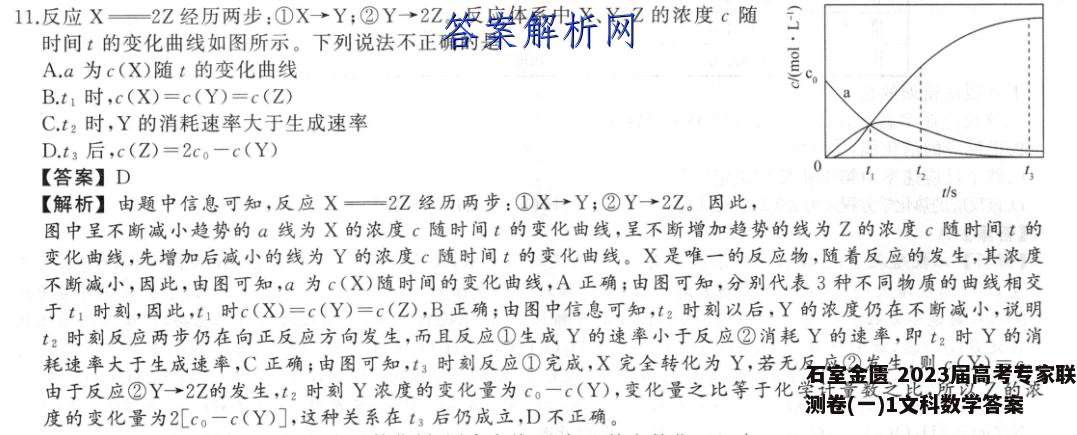 11.反应 X══2Z 经历两步:①X→Y;②Y→2Z。反应体系中 X、Y、Z 的浓度 c 随
时间 t 的变化曲线如图所示。下列说法不正确的是
答案解析网
A.a 为 c(X)随 t 的变化曲线
B.t₁ 时,c(X)=c(Y)=c(Z)
C.t₂ 时,Y 的消耗速率大于生成速率
D.t₃ 后,c(Z)=2c₀-c(Y)
c/(mol·L⁻¹)
c₀
a
0
t₁ t₂ t₃
t/s
【答案】D
【解析】由题中信息可知,反应 X══2Z 经历两步:①X→Y;②Y→2Z。因此,
图中呈不断减小趋势的 a 线为 X 的浓度 c 随时间 t 的变化曲线,呈不断增加趋势的线为 Z 的浓度 c 随时间 t 的
变化曲线,先增加后减小的线为 Y 的浓度 c 随时间 t 的变化曲线。X 是唯一的反应物,随着反应的发生,其浓度
不断减小,因此,由图可知,a 为 c(X)随时间的变化曲线,A 正确;由图可知,分别代表 3 种不同物质的曲线相交
于 t₁ 时刻,因此,t₁ 时c(X)=c(Y)=c(Z),B 正确;由图中信息可知,t₂ 时刻以后,Y 的浓度仍在不断减小,说明
t₂ 时刻反应两步仍在向正反应方向发生,而且反应①生成 Y 的速率小于反应②消耗 Y 的速率,即 t₂ 时 Y 的消
耗速率大于生成速率,C 正确;由图可知,t₃ 时刻反应①完成,X 完全转化为 Y,若无反应②发生,则 c(Y)=c
由于反应②Y→2Z的发生,t₂ 时刻 Y 浓度的变化量为 c₀-c(Y),变化量之比等于化学计量数之比,所以 Z 的浓
度的变化量为2[c₀-c(Y)],这种关系在 t₃ 后仍成立,D 不正确。
石室金匮 2023届高考专家联
测卷(一)1文科数学答案